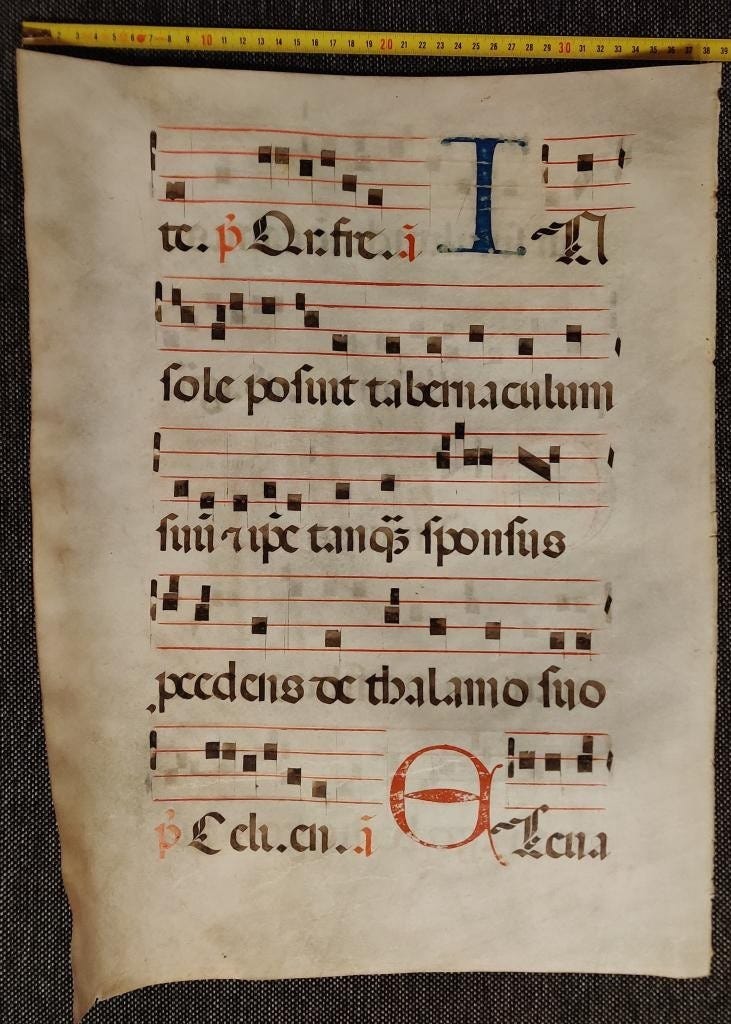 2 3 4 5 6 7 8 9 10 11 12 13 14 15 16 17 18 19 20 21 22 23 24 25 26 27 28 29 30 31 32 33 34 35 36 37 38 39
te. p̃ Qr. fre. ã IN
sole posuit tabernaculum
suū ⁊ ip̄e tanq̄ȝ sponsus
p̱cedens de thalamo suo
p̃ Celi. en. ã Eleua